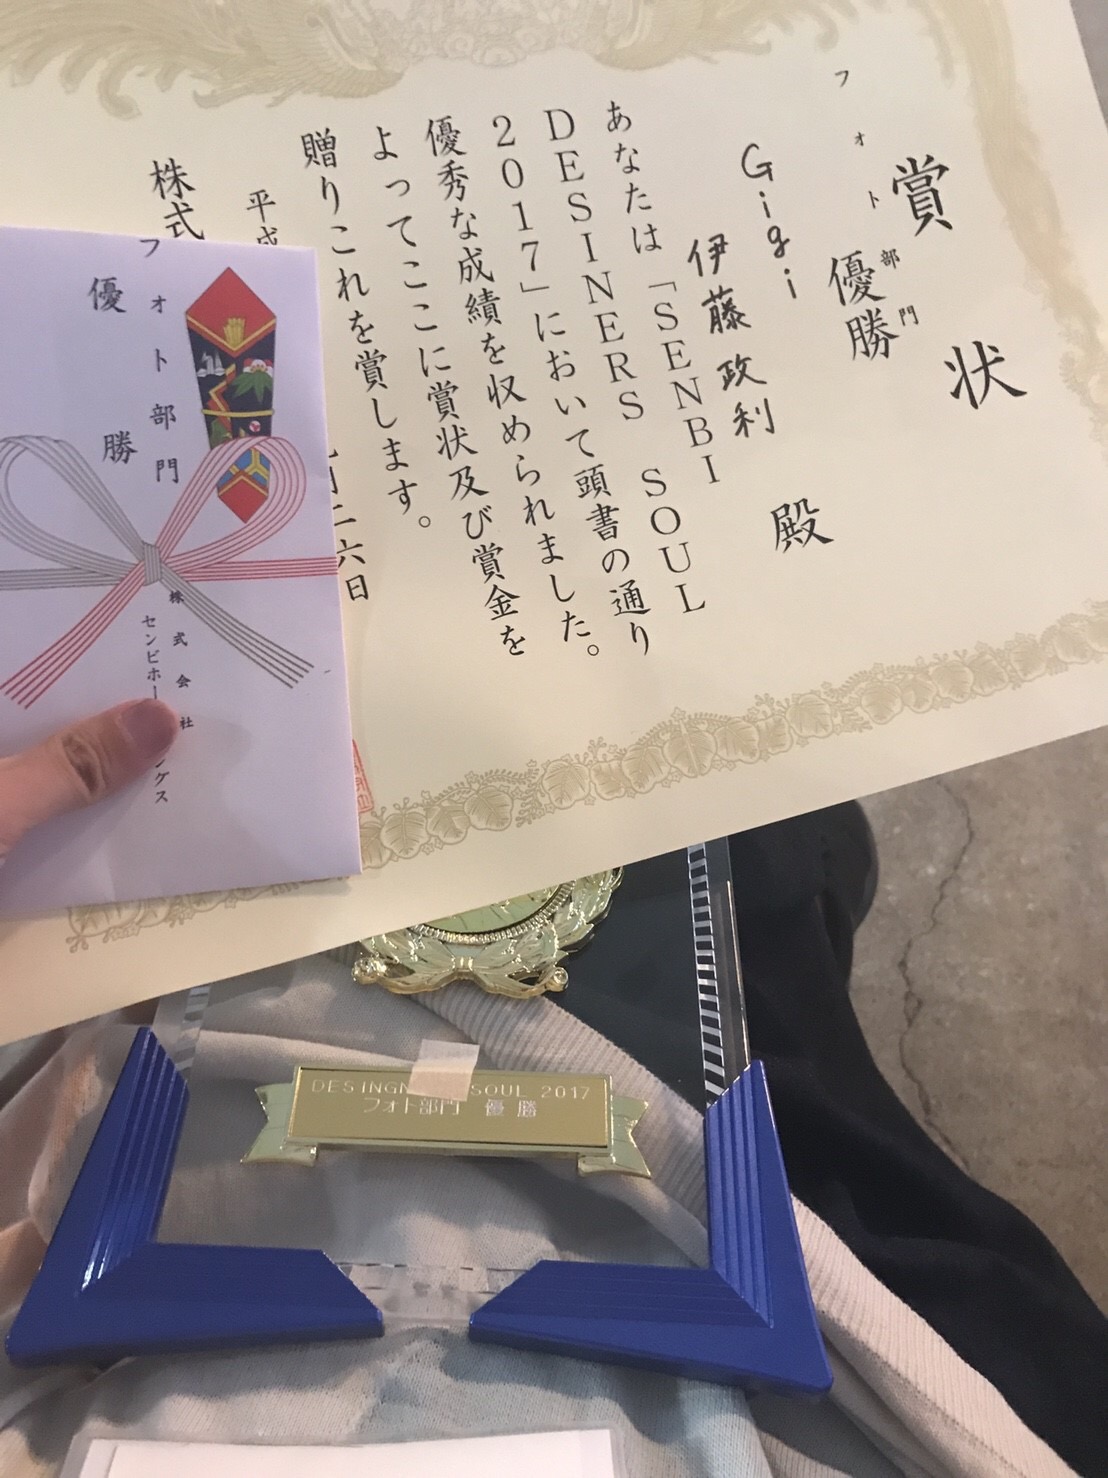 賞状
フォト部門
優勝
Gigi
伊藤政利 殿
あなたは「SENBI SOUL
DESINERS
2017」において頭書の通り
優秀な成績を収められました。
よってここに賞状及び賞金を
贈りこれを賞します。
平成
二六日
株式
フォト部門
優勝
株式会社
センビホー
ングス
DESINGN
SOUL 2017
フォト部門 優勝